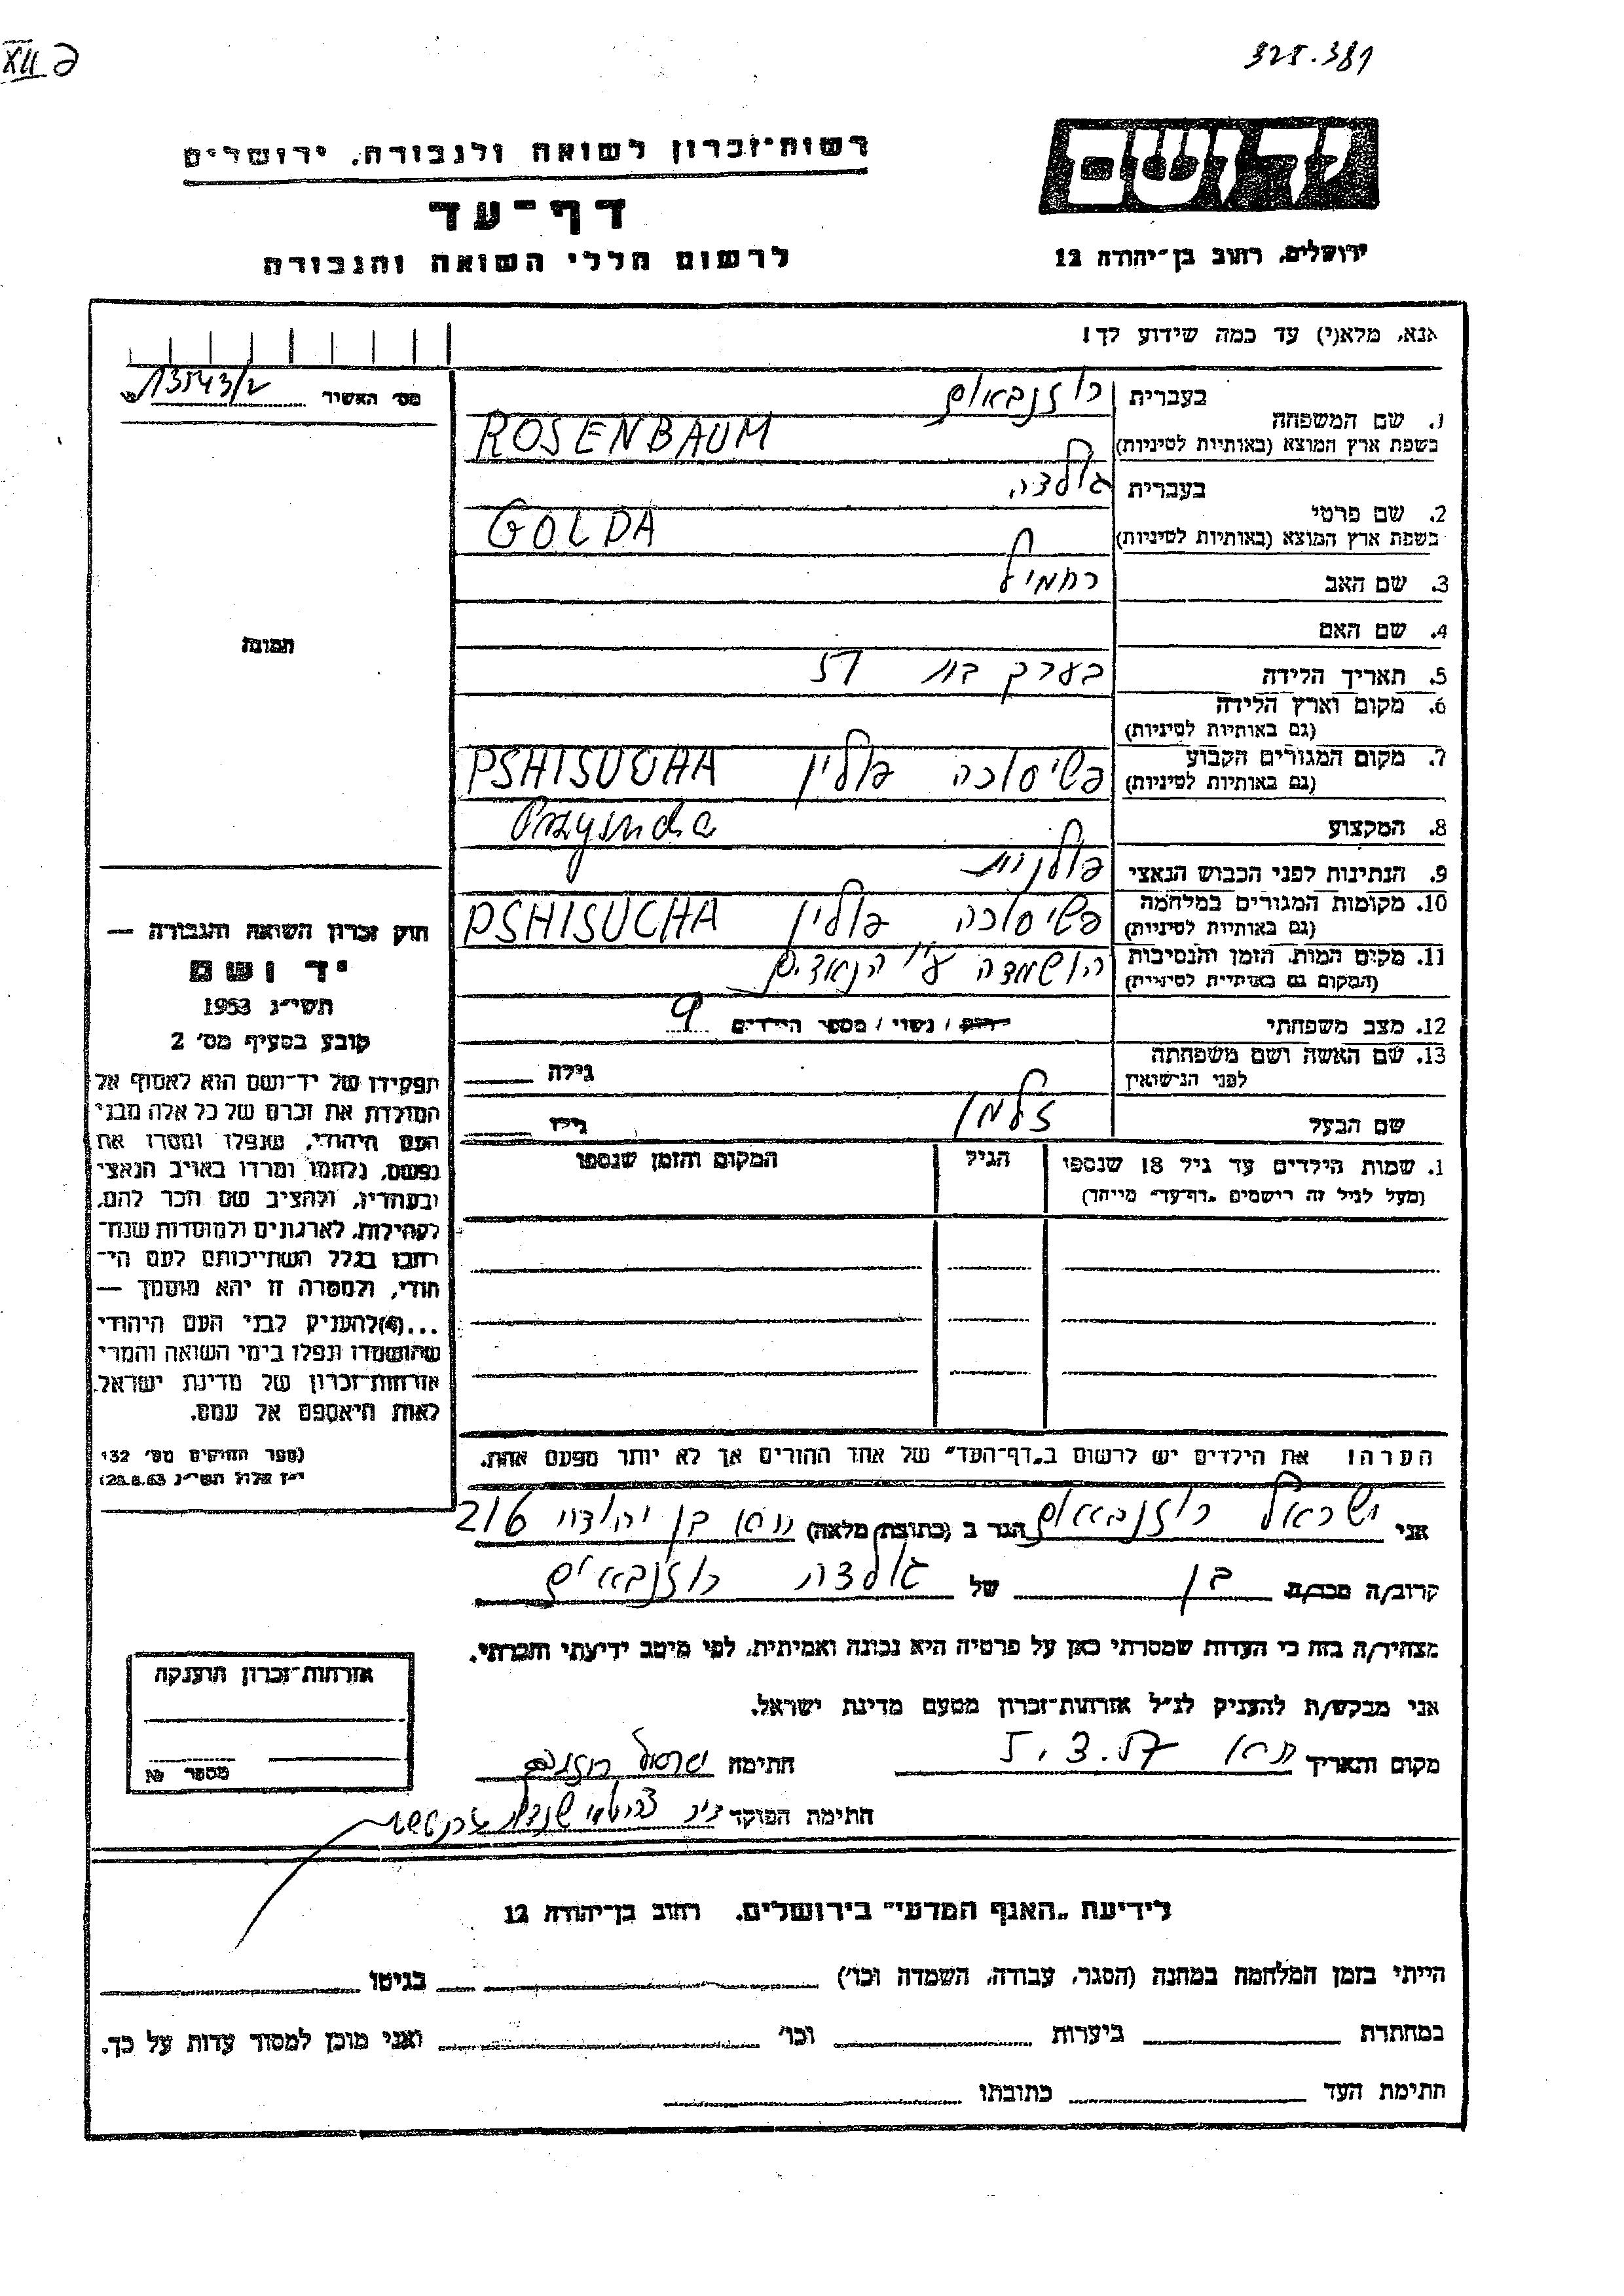 XII ə
925.381
יד ושם
רשות-זכרון לשואה ולגבורה, ירושלים
דף-עד
לרשום חללי השואה והגבורה
ירושלים, רחוב בן-יהודה 12
אנא, מלא(י) עד כמה שידוע לך!
מס׳ האשיר 13543/2
בעברית רוזנבאום
1. שם המשפחה
בשפת ארץ המוצא (באותיות לטיניות) ROSENBAUM
בעברית גולדה
2. שם פרטי
בשפת ארץ המוצא (באותיות לטיניות) GOLDA
3. שם האב ירחמיל
4. שם האם
5. תאריך הלידה בערך בת 57
6. מקום וארץ הלידה
(גם באותיות לטיניות)
7. מקום המגורים הקבוע
(גם באותיות לטיניות) פשיסוכה פולין PSHISUCHA
8. המקצוע Przysucha
9. הנתינות לפני הכבוש הנאצי פולנית
10. מקומות המגורים במלחמה
(גם באותיות לטיניות) פשיסוכה פולין PSHISUCHA
11. מקום המות, הזמן והנסיבות
(המקום גם באותיות לטיניות) הושמדה ע״י הנאצים
12. מצב משפחתי רווק / נשוי / מספר הילדים 9
13. שם האשה ושם משפחתה
לפני הנישואין גילה
שם הבעל זלמן גילו
1. שמות הילדים עד גיל 18 שנספו הגיל המקום והזמן שנספו
(מעל לגיל זה רישמים „דף-עד״ מייחד)
הערה: את הילדים יש לרשום ב„דף-העד״ של אחד ההורים אך לא יותר מפעם אחת.
תמונה
חוק זכרון השואה והגבורה —
יד ושם
תשי״ג 1953
קובע בסעיף מס׳ 2
תפקידו של יד-ושם הוא לאסוף אל
המולדת את זכרם של כל אלה מבני
העם היהודי, שנפלו ומסרו את
נפשם, נלחמו ומרדו באויב הנאצי
ובעוזריו, ולהציב שם וזכר להם,
לקהילות, לארגונים ולמוסדות שנח-
רבו בגלל השתייכותם לעם הי-
הודי, ולמטרה זו יהא מוסמך —
...(4)להעניק לבני העם היהודי
שהושמדו ונפלו בימי השואה והמרי
אזרחות-זכרון של מדינת ישראל
לאות היאספם אל עמם.
(ספר החוקים מס׳ 132
י״ז אלול תשי״ג 28.8.53)
אני ישראל רוזנבאום הגר ב (כתובת מלאה) בן יהודה 216
קרוב/ה מכר/ת בן של גולדה רוזנבאום
מצהיר/ה בזה כי העדות שמסרתי כאן על פרטיה היא נכונה ואמיתית, לפי מיטב ידיעתי והכרתי.
אני מבקש/ת להעניק לנ״ל אזרחות-זכרון מטעם מדינת ישראל.
מקום ותאריך ת״א 5.3.57 חתימה ישראל רוזנבאום
חתימת הפוקד
אזרחות-זכרון הוענקה
מספר №
לידיעת „האגף המדעי״ בירושלים, רחוב בן-יהודה 12
הייתי בזמן המלחמה במחנה (הסגר, עבודה, השמדה וכו׳) בגיטו
במחתרת ביערות וכו׳ ואני מוכן למסור עדות על כך.
חתימת העד כתובתו